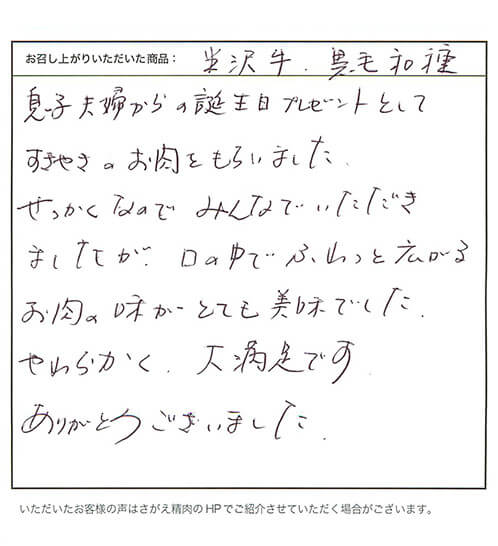 お召し上がりいただいた商品： 米沢牛．黒毛和種
息子夫婦からの誕生日プレゼントとして
すきやきのお肉をもらいました．
せっかくなので みんなでいただき
ましたが．口の中でふわっと広がる
お肉の味がとても美味でした．
やわらかく．大満足です．
ありがとうございました．
いただいたお客様の声はさがえ精肉のHPでご紹介させていただく場合がございます。